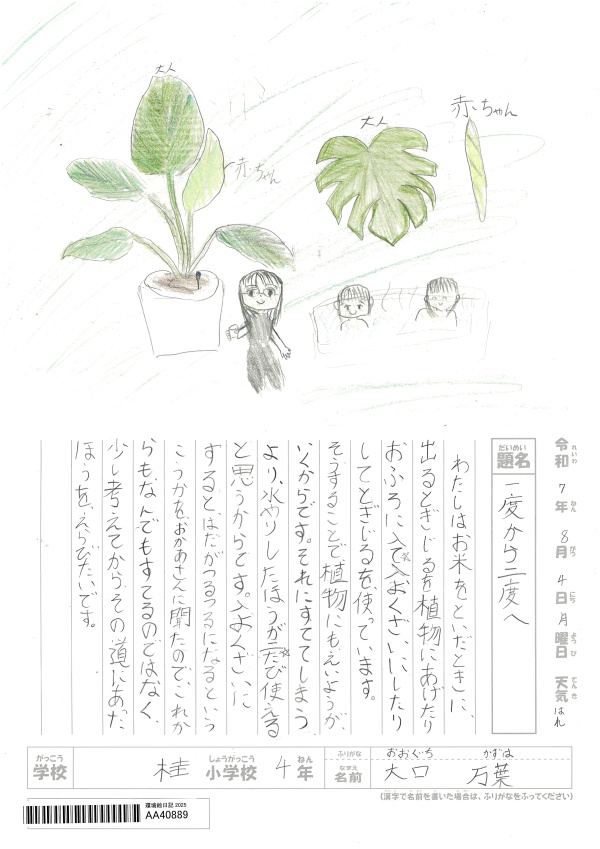 大人
赤ちゃん
大人
赤ちゃん
令和 7年 8月 4日 月曜日 天気 はれ
れいわ ねん がつ にち ようび てんき
だいめい
題名
一度から二度へ
わたしはお米をといだときに、
出るとぎじるを植物にあげたり
おふろに入て入よくざいにしたり
してとぎじるを使っています。
そうすることで植物にもえいようが、
いくからです。それにすててしまう
より、水やりしたほうが二たび使える
と思うからです。入よくざいに
すると、はだがつるつるになるという
こうかを、おかあさんに聞たので、これか
らもなんでもすてるのではなく、
少し考えてからその道にあった
ほうを、えらびたいです。
がっこう
学校
桂 小学校 4年
しょうがっこう ねん
ふりがな おおぐち かずは
なまえ
名前 大口 万葉
(漢字で名前を書いた場合は、ふりがなをふってください)
環境絵日記 2025
AA40889